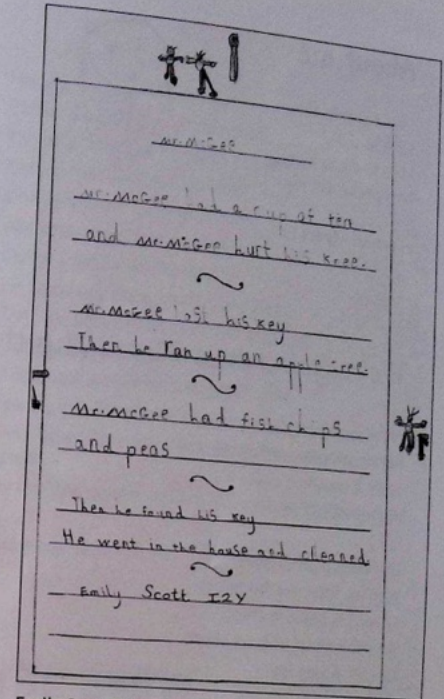 Mr. McGee
Mr. McGee had a cup of tea
and Mr. McGee hurt his knee.
Mr. McGee lost his key
Then he ran up an apple tree.
Mr. McGee had fish chips
and peas
Then he found his key
He went in the house and cleaned
Emily Scott I2Y